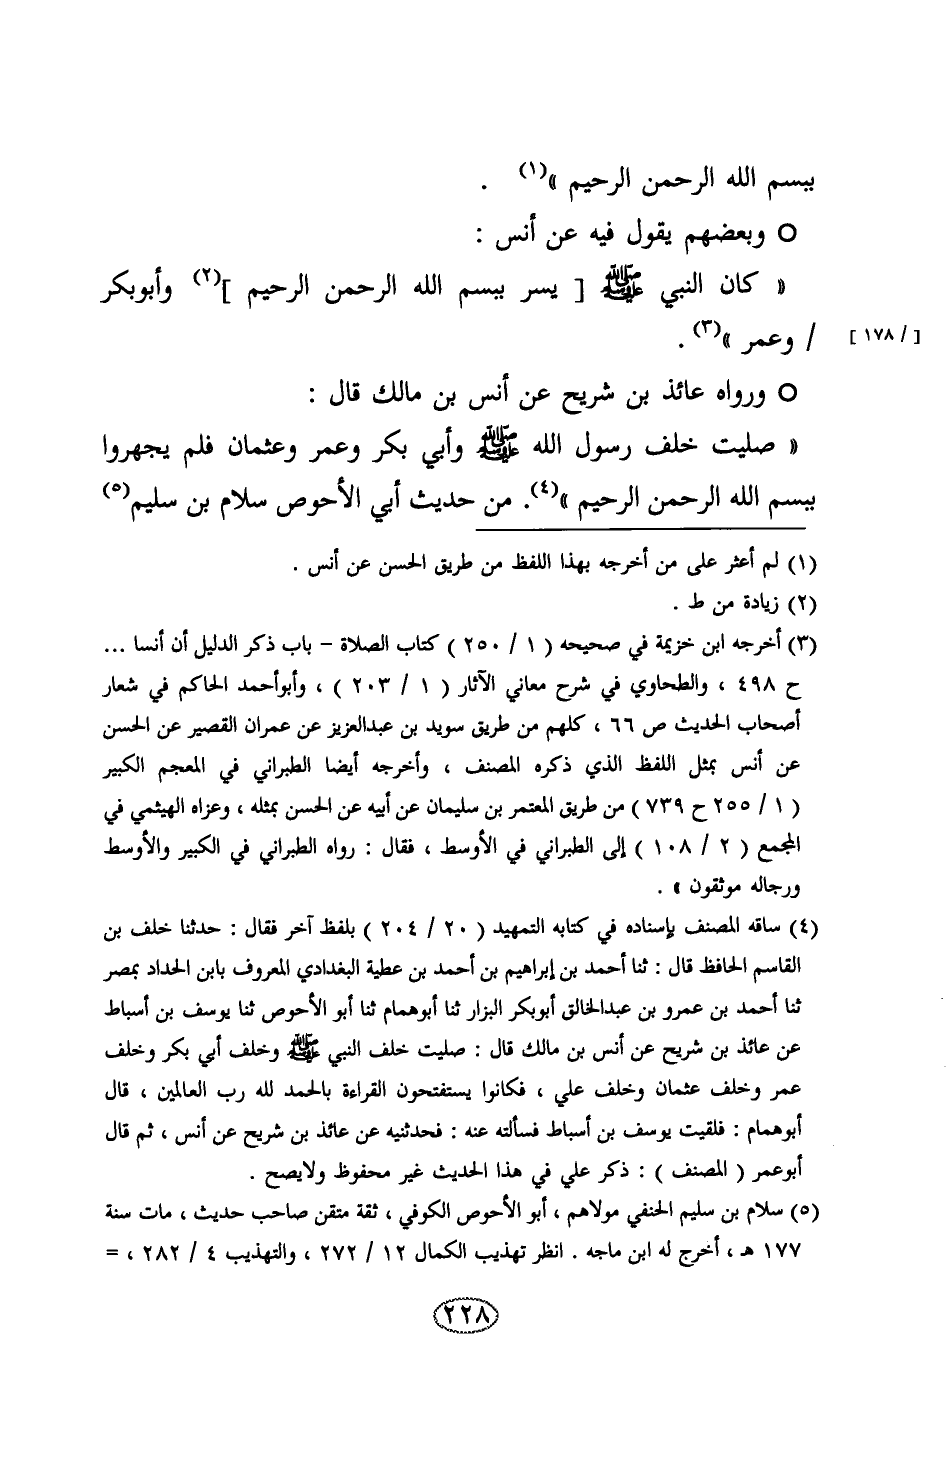 ببسم الله الرحمن الرحيم »(١) .
O وبعضهم يقول فيه عن أنس :
« كان النبي ﷺ [ يسر ببسم الله الرحمن الرحيم ](٢) وأبوبكر
/ وعمر »(٣) .
[ / ١٧٨ ]
O ورواه عائذ بن شريح عن أنس بن مالك قال :
« صليت خلف رسول الله ﷺ وأبي بكر وعمر وعثمان فلم يجهروا
ببسم الله الرحمن الرحيم »(٤). من حديث أبي الأحوص سلام بن سليم(٥)
(١) لم أعثر على من أخرجه بهذا اللفظ من طريق الحسن عن أنس .
(٢) زيادة من ط .
(٣) أخرجه ابن خزيمة في صحيحه ( ١ / ٢٥٠ ) كتاب الصلاة – باب ذكر الدليل أن أنسا ...
ح ٤٩٨ ، والطحاوي في شرح معاني الآثار ( ١ / ٢٠٣ ) ، وأبوأحمد الحاكم في شعار
أصحاب الحديث ص ٦٦ ، كلهم من طريق سويد بن عبدالعزيز عن عمران القصير عن الحسن
عن أنس بمثل اللفظ الذي ذكره المصنف ، وأخرجه أيضا الطبراني في المعجم الكبير
( ١ / ٢٥٥ ح ٧٣٩ ) من طريق المعتمر بن سليمان عن أبيه عن الحسن بمثله ، وعزاه الهيثمي في
المجمع ( ٢ / ١٠٨ ) إلى الطبراني في الأوسط ، فقال : رواه الطبراني في الكبير والأوسط
ورجاله موثقون » .
(٤) ساقه المصنف بإسناده في كتابه التمهيد ( ٢٠ / ٢٠٤ ) بلفظ آخر فقال : حدثنا خلف بن
القاسم الحافظ قال : ثنا أحمد بن إبراهيم بن أحمد بن عطية البغدادي المعروف بابن الحداد بمصر
ثنا أحمد بن عمرو بن عبدالخالق أبوبكر البزار ثنا أبوهمام ثنا أبو الأحوص ثنا يوسف بن أسباط
عن عائذ بن شريح عن أنس بن مالك قال : صليت خلف النبي ﷺ وخلف أبي بكر وخلف
عمر وخلف عثمان وخلف علي ، فكانوا يستفتحون القراءة بالحمد لله رب العالمين ، قال
أبوهمام : فلقيت يوسف بن أسباط فسألته عنه : فحدثنيه عن عائذ بن شريح عن أنس ، ثم قال
أبوعمر ( المصنف ) : ذكر علي في هذا الحديث غير محفوظ ولايصح .
(٥) سلام بن سليم الحنفي مولاهم ، أبو الأحوص الكوفي ، ثقة متقن صاحب حديث ، مات سنة
١٧٧ هـ ، أخرج له ابن ماجه . انظر تهذيب الكمال ١٢ / ٢٧٢ ، والتهذيب ٤ / ٢٨٢ ، =
٢٢٨